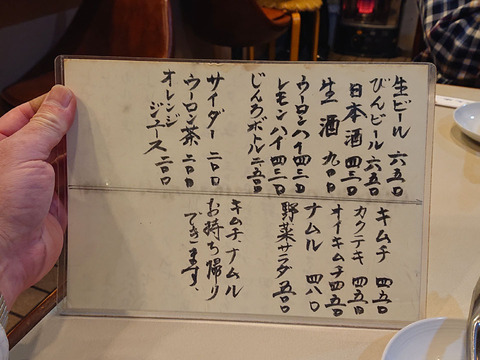 生ビール 六五〇
びんビール 六五〇
日本酒 四三〇
生酒 九〇〇
ウーロンハイ 四三〇
レモンハイ 四三〇
じんろボトル 二、五〇〇
サイダー 二〇〇
ウーロン茶 二〇〇
オレンジ
ジュース 二〇〇
キムチ 四五〇
カクテキ 四五〇
オイキムチ 四五〇
ナムル 四八〇
野菜サラダ 五〇〇
キムチ、ナムル
お持ち帰り
できます。